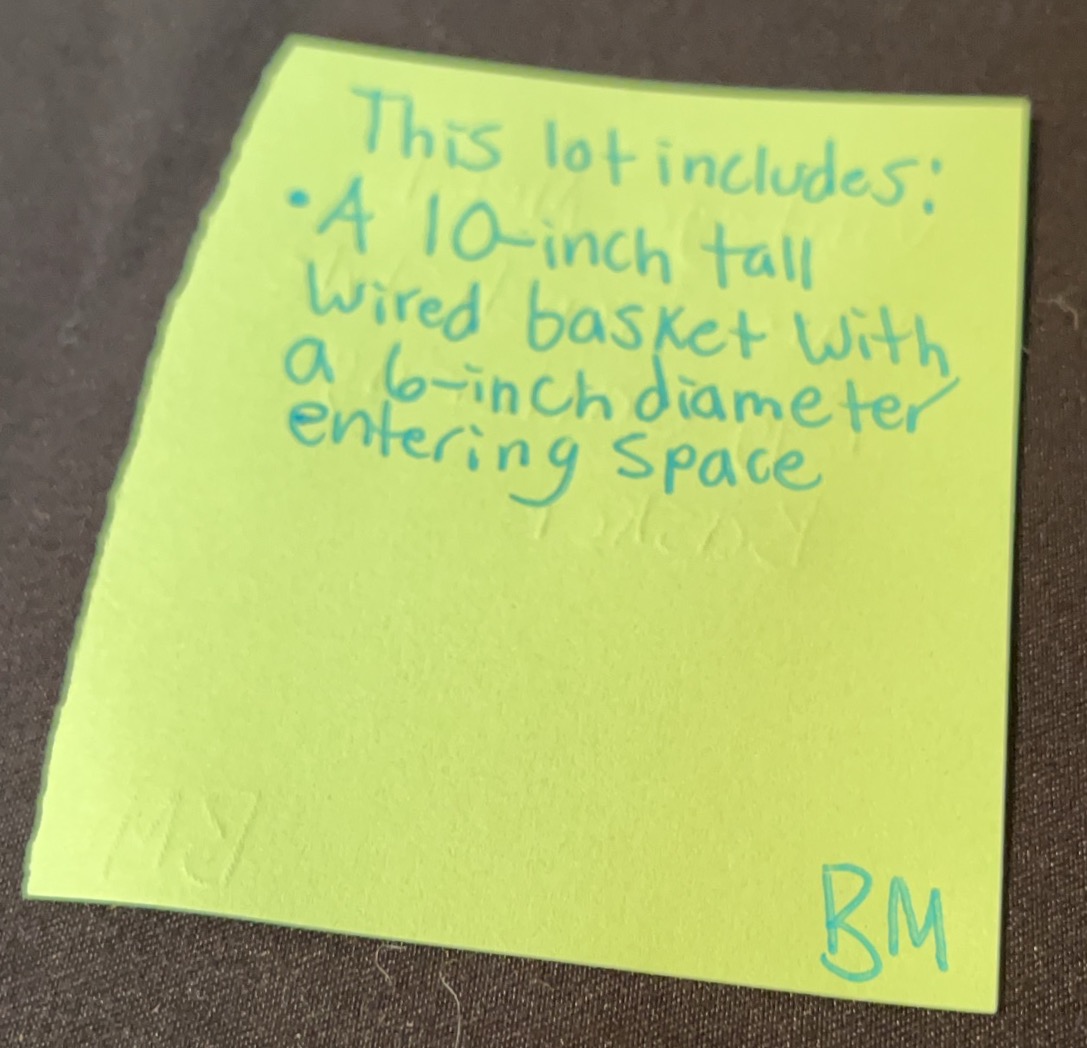 This lot includes:
• A 10-inch tall
wired basket with
a 6-inch diameter
entering space
BM